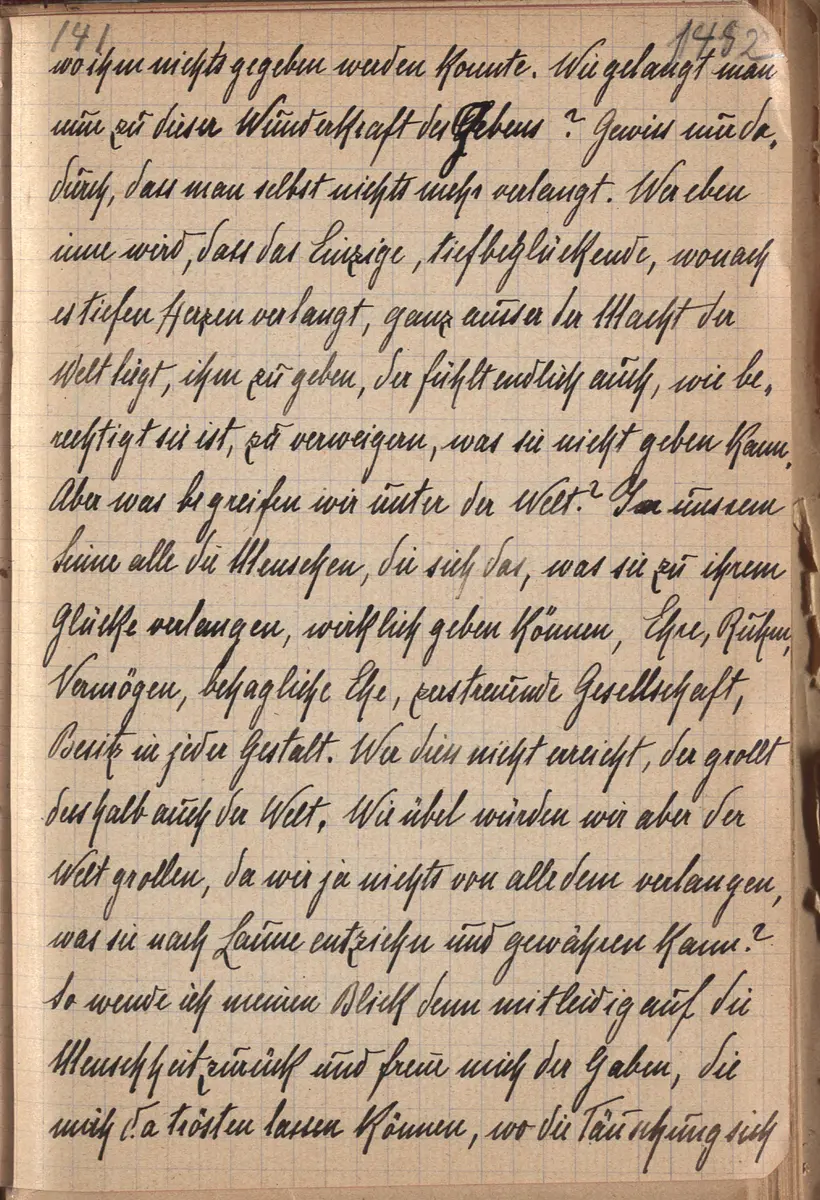 141 1482
wo ihm nichts gegeben werden konnte. Wie gelangt man
nun zu dieser Wunderkraft des Gebens? Gewiss nur da-
durch, dass man selbst nichts mehr verlangt. Wer eben
inne wird, dass das Einzige, tiefbeglückende, wonach
es tiefen Herzen verlangt, ganz ausser der Macht der
Welt liegt, ihm zu geben, der fühlt endlich auch, wie be-
rechtigt sie ist, zu verweigern, was sie nicht geben kann.
Aber was begreifen wir unter der Welt? In unsrem
Sinne alle die Menschen, die sich das, was sie zu ihrem
Glücke verlangen, wirklich geben können, Ehre, Ruhm,
Vermögen, behagliche Ehe, zerstreuende Gesellschaft,
Besitz in jeder Gestalt. Wer dies nicht erreicht, der grollt
desshalb auch der Welt. Wie übel würden wir aber der
Welt grollen, da wir ja nichts von alledem verlangen,
was sie nach Laune entziehn und gewähren kann?
So wende ich meinen Blick denn mitleidig auf die
Menschheit zurück und freue mich der Gaben, die
mich da trösten lassen können, wo die Täuschung sich